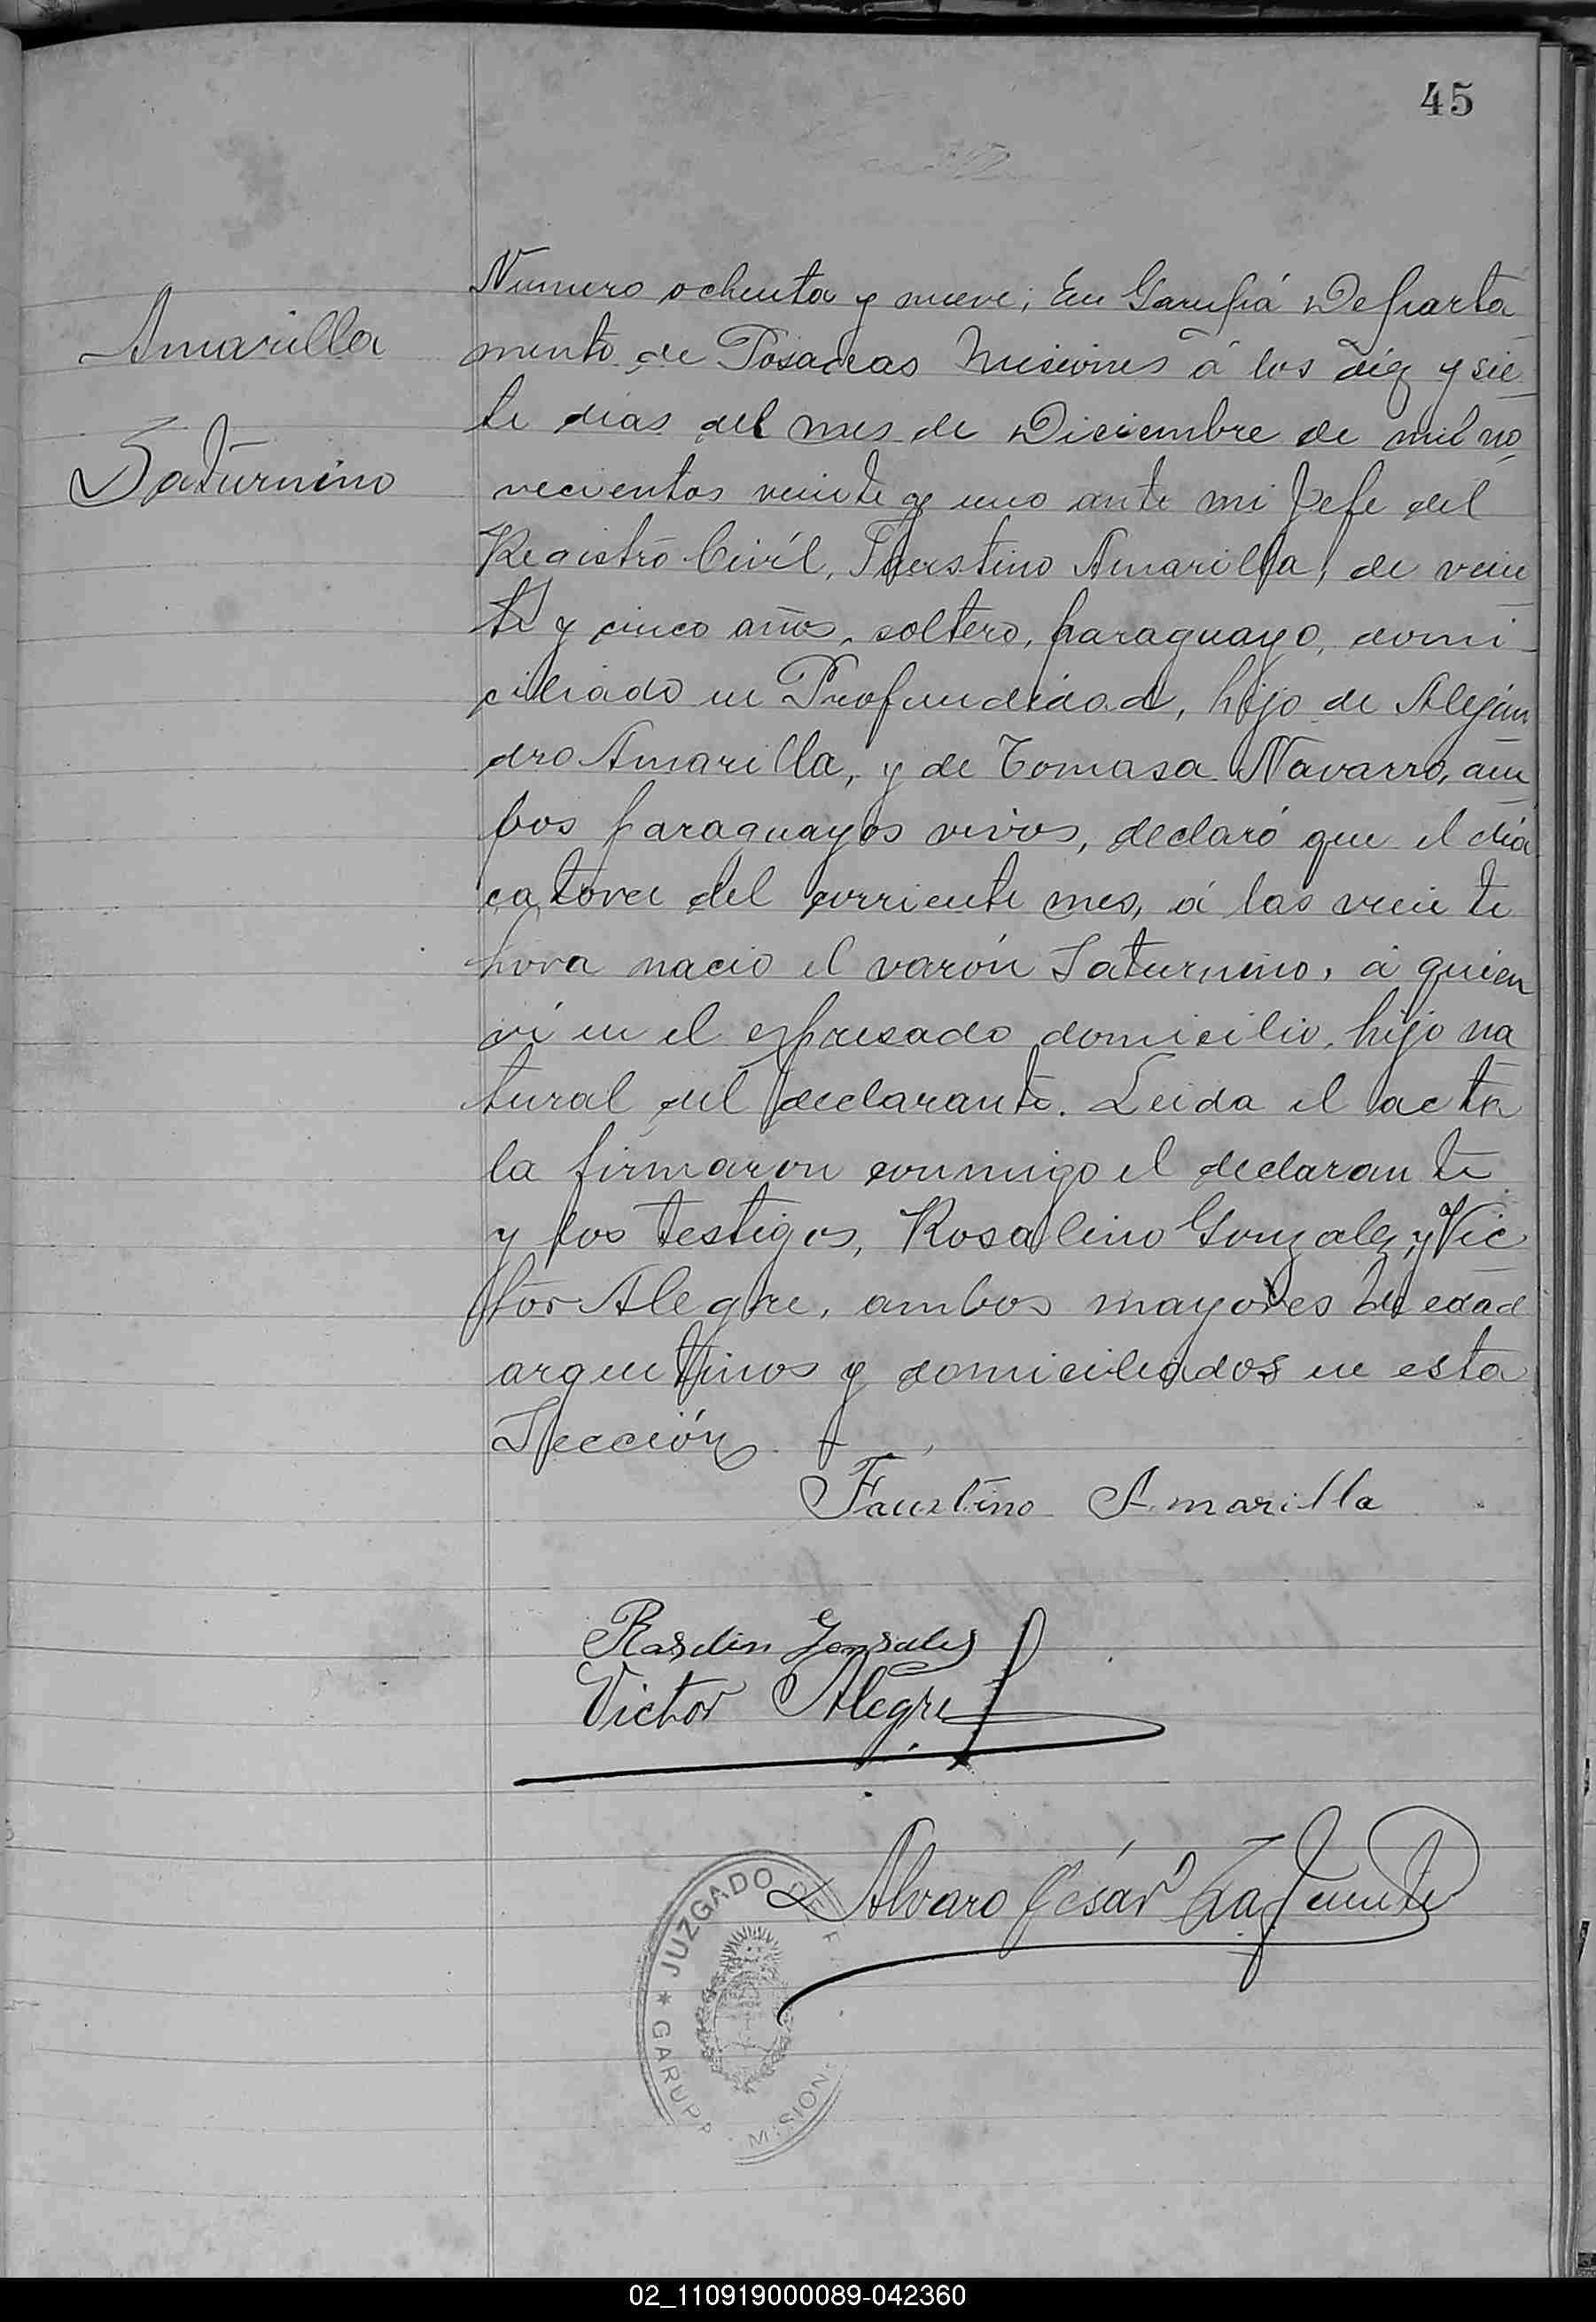 45
Amarilla
Saturnino
Numero ochenta y nueve; En Garupá Departa
mento de Posadas Misiones á los diez y sie
te dias del mes de Diciembre de mil no
vecientos veinte y uno ante mi Jefe del
Registro Civíl, Faustino Amarilla, de vein
te y cinco años, soltero, paraguayo, domi
ciliado en Profundidad, hijo de Alejan
dro Amarilla, y de Tomasa Navarro, am
bos paraguayos vivos, declaró que el día
catorce del corriente mes, á las veinte
hora nació el varón Saturnino, á quien
ví en el expresado domicilio, hijo na
tural del declarante. Leida el acta
la firmaron conmigo el declarante
y los testigos, Rosalino Gonzalez, y Vic
tor Alegre, ambos mayores de edad
argentinos y domiciliados en esta
Sección
Faustino Amarilla
Gonzales
Victor Alegre
Alvaro César Lafuente
JUZGADO DE
GARUP
MISION
02_110919000089-042360